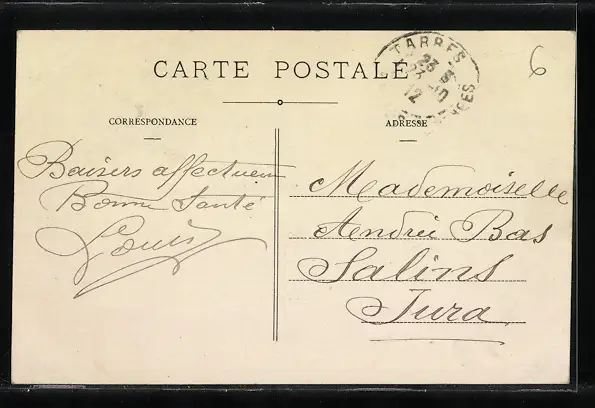 CARTE POSTALE
TARBES
6
CORRESPONDANCE
ADRESSE
Baisers affectueux
Bonne Santé
Louis
Mademoiselle
Andrée Bas
Salins
Jura